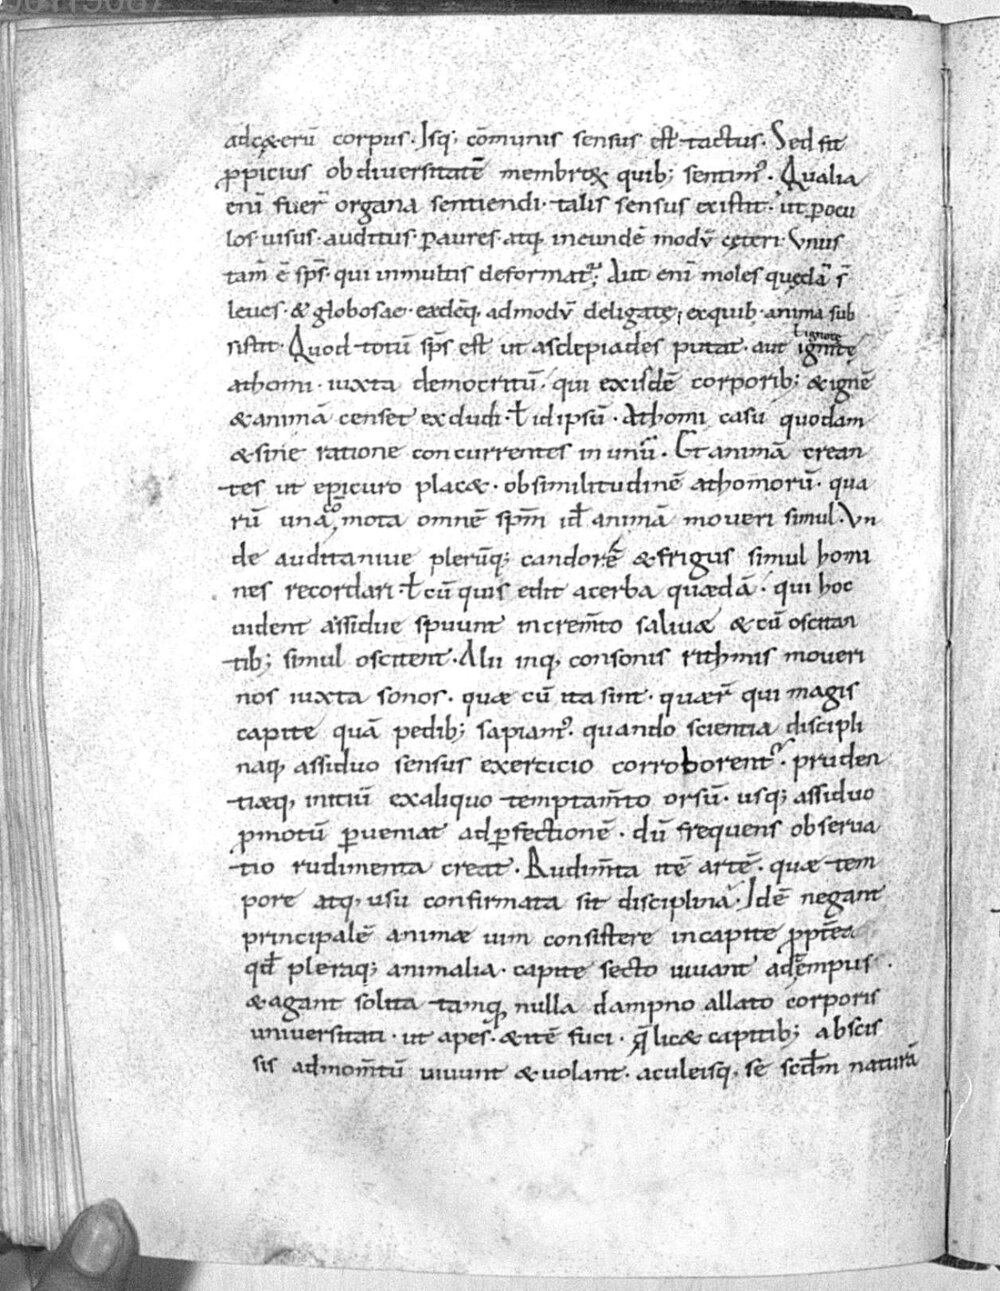 adcęterū corpus. Isq; cōmunis sensus est tactus. Sed fit
ppicius ob diuersitatē membroꝝ quib; sentim᾿. Qualia
enī fuer̄ organa sentiendi. talis sensus existit. ut p ocu
los uisus. auditus p aures. atq, in eundē modū cęteri. Vnus
tam̄ ē sps̄. qui in multis deformat᾿. Aut enī moles quędā s̄
leues. & globosae. eadēq, admodū deligatę, ex quib. anima sub
sistit. Quod totū sps̄ est ut asclepiades putat. aut ignitę
ł ignotę
athomi. iuxta democritū. qui exisdē corporib; & ignē
& animā censet excludi. ł id ipsū. Athomi casu quodam
& sine ratione concurrentes in unū. Et animā crean
tes ut epicuro placæ. ob similitudinē athomorū. qua
rū unā cō mota omnē spm̄ id ē animā moueri simul. Vn
de audita niue plerūq; candorē & frigus simul homi
nes recordari. ł cū quis edit acerba quædā. qui hoc
uident assidue spuunt increm̄to saliuæ & cū oscitan
tib; simul oscitent. Alii inq, consonis rithmis moueri
nos iuxta sonos. quæ cū ita sint. quær̄ qui magis
capite quā pedib; sapiam᾿. quando scientia discipli
naq, assiduo sensus exercicio corroborent᾿. pruden
tiæq, initiū ex aliquo temptam̄to orsū. usq; assiduo
pmotū pueniat ad pfectionē. dū frequens obserua
tio rudimenta creat. Rudim̄ta itē artē. quæ tem
pore atq, usu confirmata sit disciplina. Idē negant
principalē animæ uim consistere in capite pptea
qd̄ pleraq; animalia. capite secto uiuant ad tempus.
& agant solita tamq, nulla dampno allato corporis
uniuersitati. ut apes. & itē fuci. q̄ licæ capitib; abscis
sis ad mom̄tū uiuunt & uolant. aculeisq. se scdm̄ naturā